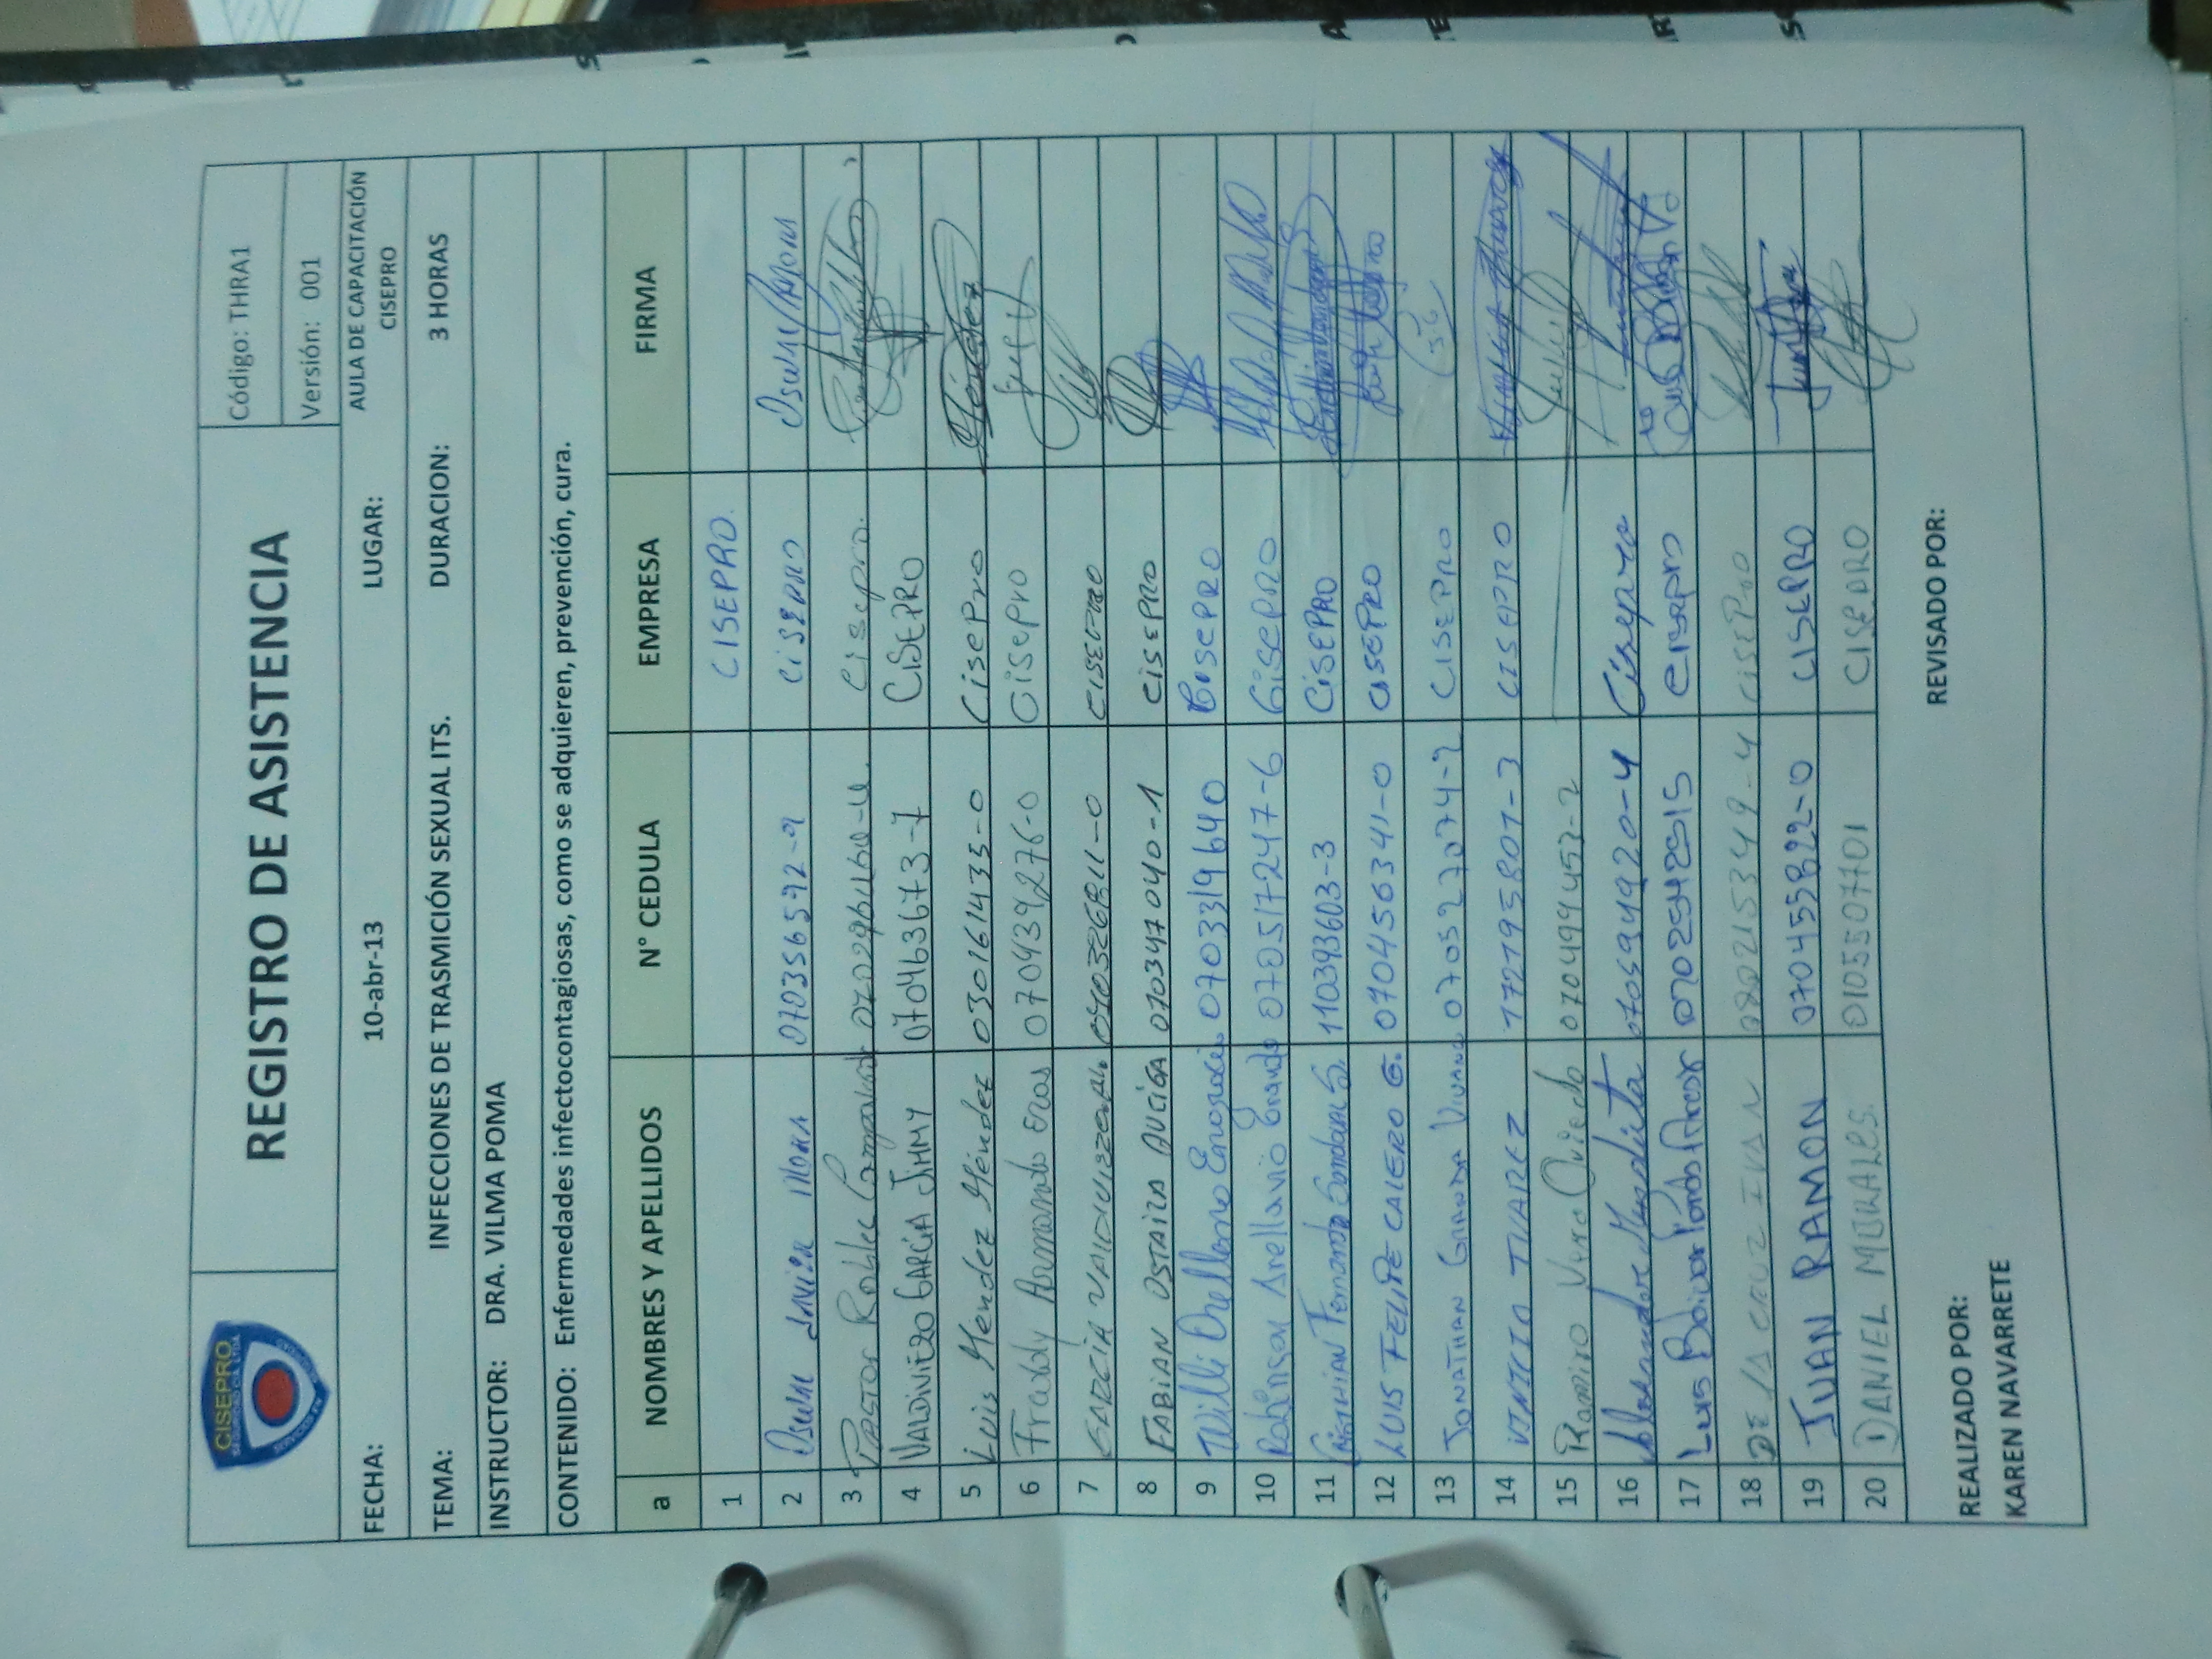 CISEPRO
SEGURIDAD CIA. LTDA.
REGISTRO DE ASISTENCIA
Código: THRA1
Versión: 001
FECHA: 10-abr-13 LUGAR: AULA DE CAPACITACIÓN CISEPRO
TEMA: INFECCIONES DE TRASMICIÓN SEXUAL ITS. DURACION: 3 HORAS
INSTRUCTOR: DRA. VILMA POMA
CONTENIDO: Enfermedades infectocontagiosas, como se adquieren, prevención, cura.
a NOMBRES Y APELLIDOS N° CEDULA EMPRESA FIRMA
1 CISEPRO.
2 JAVIER MORA 070356592-9 CISEPRO
3 PASTOR Robles Cisepro.
4 VALDIVIEZO GARCÍA JIMMY 070463673-7 CISEPRO
5 Luis Mendez Méndez 030161435-0 CisePro Méndez
6 Freddy Armando Eras 070439276-0 CisePro
7 GARCÍA CISEPRO
8 FABIAN OSTAIZA AVEIGA 070347040-1 CISEPRO
9 Willi Orellano 0703319640 CISEPRO
10 Robinson Arellano 070517247-6 CISEPRO
11 CRISTHIAN Fernando 110393603-3 CISEPRO
12 LUIS FELIPE CALERO G. 070456341-0 CISEPRO
13 JONATHAN GRANDA 070522707-2 CISEPRO
14 VINICIO TUAREZ 172795807-3 CISEPRO
15 Ramiro Vera Oviedo 070499453-2
16 Alexander 070594920-4 Cisepro
17 Luis Bolivar 0702542915 CISEPRO
18 DE LA CRUZ IVAN 080215349-4 CISEPRO
19 JUAN RAMON 070455822-0 CISEPRO
20 DANIEL MORALES. 0105507701 CISEPRO
REALIZADO POR: REVISADO POR:
KAREN NAVARRETE